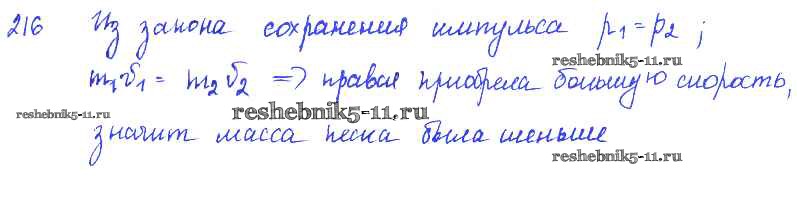 216 Из закона сохранения импульса p₁=p₂ ;
reshebnik5-11.ru
m₁v₁ = m₂v₂ => правая приобрела большую скорость,
reshebnik5-11.ru
reshebnik5-11.ru
значит масса песка была меньше
reshebnik5-11.ru